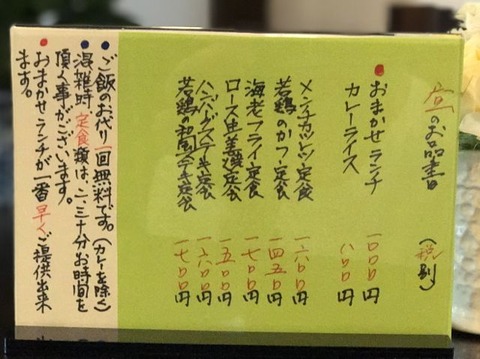 昼のお品書 (税別)
おまかせランチ 一〇〇〇円
カレーライス 八〇〇円
メンチカツレツ定食 一六〇〇円
若鶏のかつ定食 一四五〇円
海老フライ定食 一七〇〇円
ロース生姜焼定食 一五〇〇円
ハンバーグステーキ定食 一六〇〇円
若鶏の和風ソテー定食 一七〇〇円
ご飯のお代り一回無料です。(カレーを除く)
混雑時、定食類は、二、三十分お時間を
頂く事がございます。
おまかせランチが一番早くご提供出来
ます。